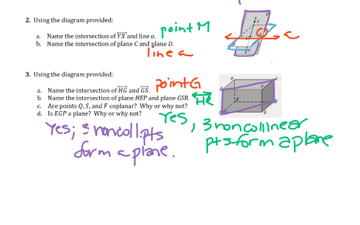 2. Using the diagram provided:
a. Name the intersection of YX and line a. point M
b. Name the intersection of plane C and plane D.
line a
3. Using the diagram provided:
a. Name the intersection of HG and GS. point G
b. Name the intersection of plane HEP and plane GSR. HR
c. Are points Q, S, and F coplanar? Why or why not?
d. Is EGP a plane? Why or why not?
Yes, 3 noncollinear
pts form a plane
Yes; 3 noncoll. pts
form a plane.